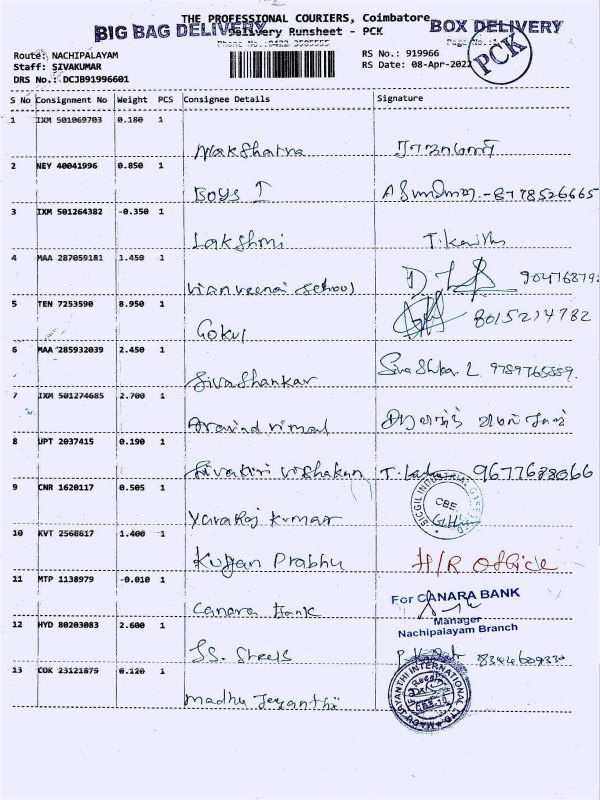 THE PROFESSIONAL COURIERS, Coimbatore
BIG BAG DELIVERY
Delivery Runsheet - PCK
BOX DELIVERY
Phone No.:0422 3505555
Page No.:1
PCK
Route: NACHIPALAYAM
RS No.: 919966
Staff: SIVAKUMAR
RS Date: 08-Apr-2022
DRS No.: DCJB91996601
S No Consignment No Weight PCS Consignee Details Signature
1 IXM 501069703 0.180 1
2 NEY 40041996 0.850 1
Boys
8778526665
3 IXM 501264382 -0.350 1
Lakshmi
4 MAA 287059181 1.450 1
school
5 TEN 7253590 8.950 1
Gokul 8015214782
6 MAA 285932039 2.450 1
Sivashankar 9789765889
7 IXM 501274685 2.700 1
Aravind vimal
8 UPT 2037415 0.190 1
9677688066
9 CNR 1620117 0.505 1
SICGIL INDUSTRIAL
CBE.
Yuvaraj kumar
10 KVT 2568817 1.400 1
Kuppan Prabhu H/R office
11 MTP 1138979 -0.010 1
For CANARA BANK
Canara Bank
Manager
12 HYD 80203083 2.600 1
Nachipalayam Branch
SS. Steels 8344609330
13 COK 23121875 0.120 1
MADHU JAYANTHI INTERNATIONAL LTD
Madhu Jeyanthi